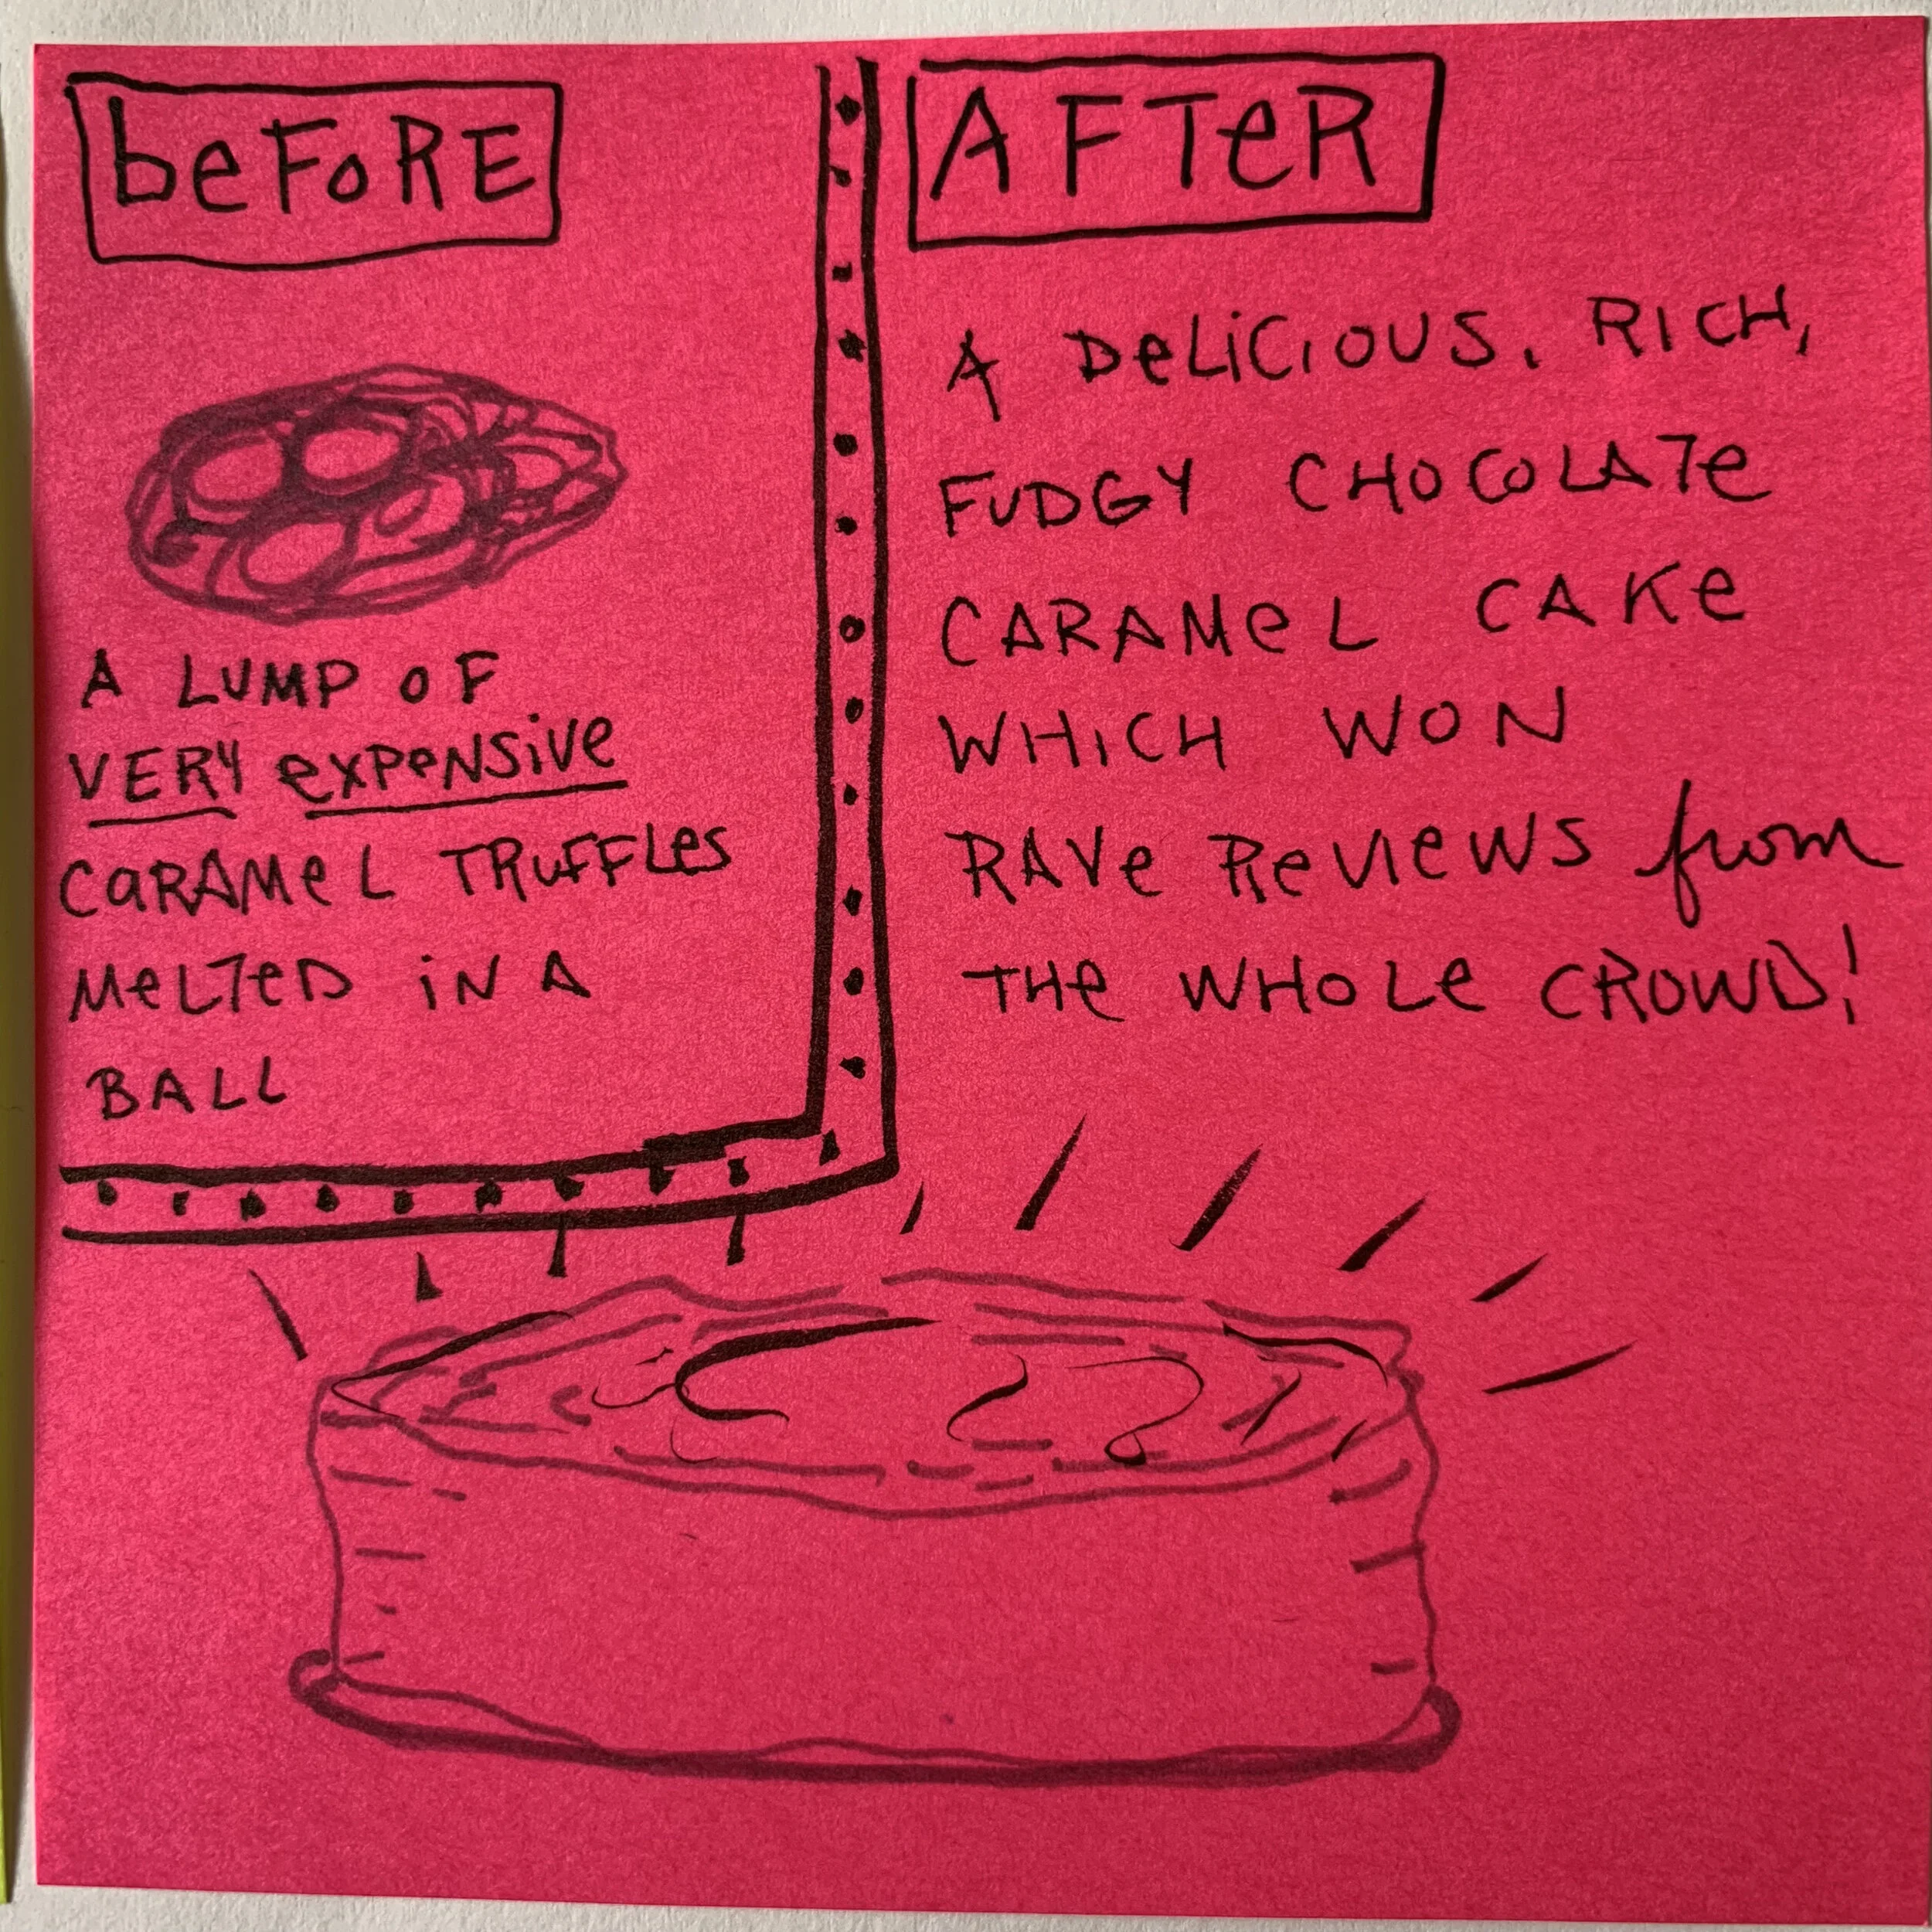 beFoRE
A LUMP OF
VERY exPeNSive
CaRAMeL TRUFFLes
MeLTeD iN A
BALL
AFTeR
A DeLiCiOUS, RICH,
FUDGY CHOCOLATe
CARAMeL CAKe
WHiCH WON
RAVe ReVIeWS from
THe WHOLe CROWD!